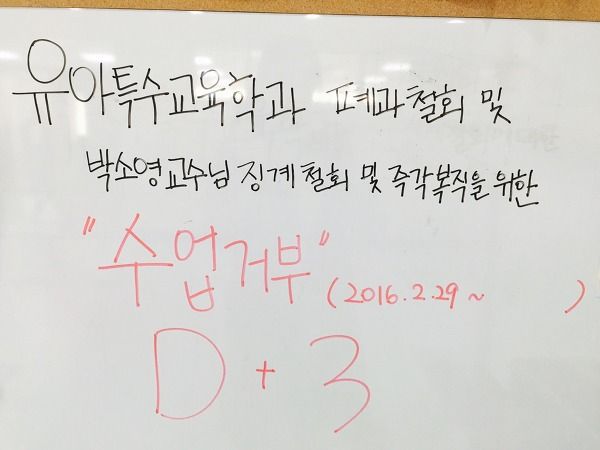 유아특수교육학과 폐과철회 및
박소영교수님 징계철회 및 즉각복직을 위한
"수업거부" (2016.2.29~ )
D+3